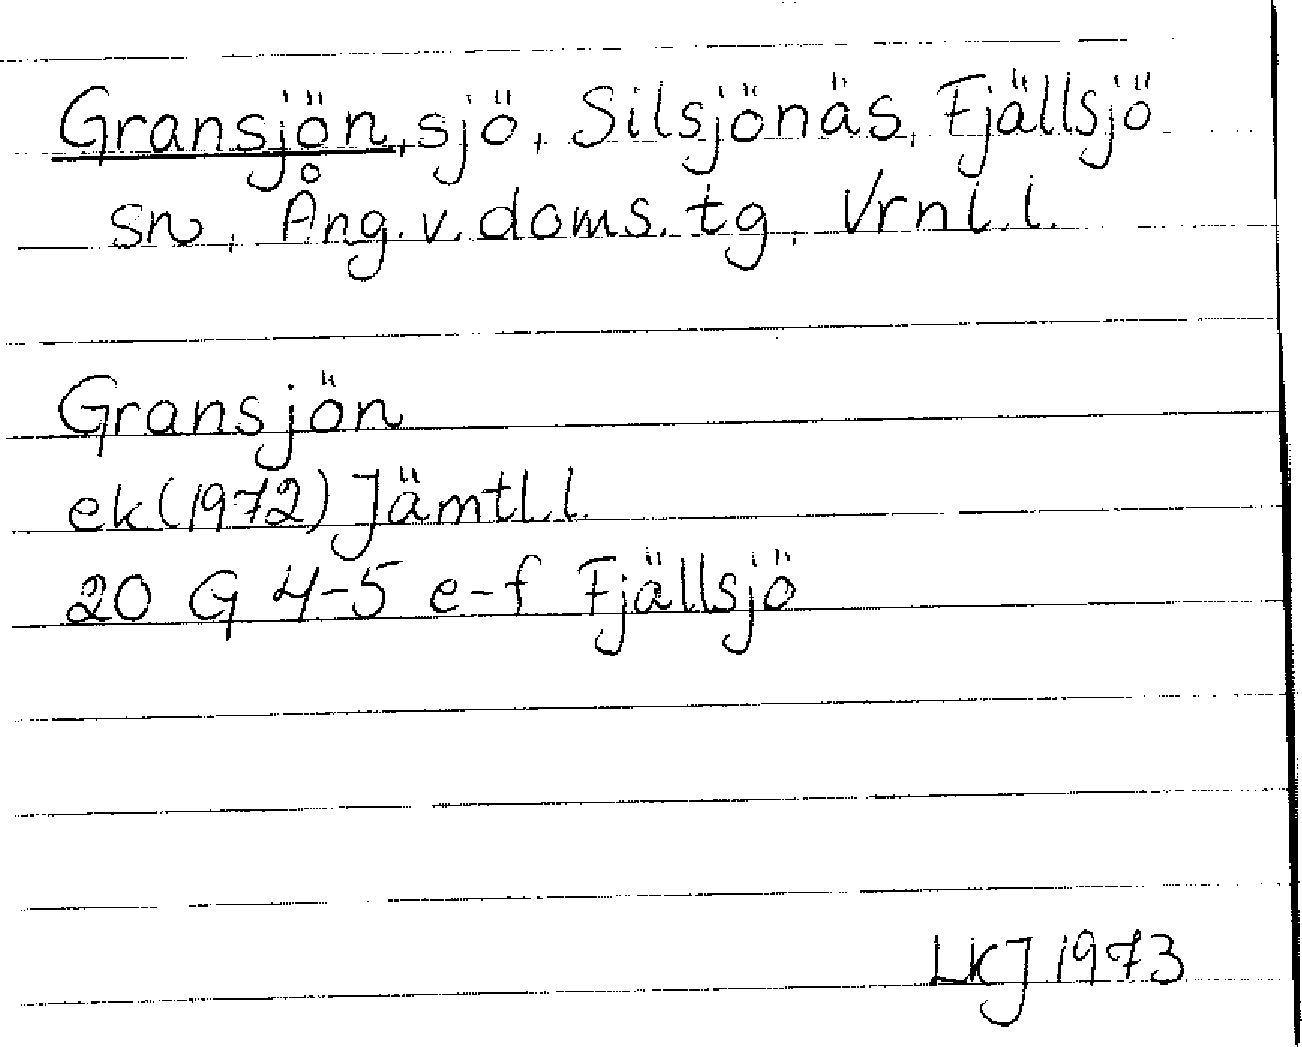 Gransjön, sjö, Silsjönäs, Fjällsjö
sn, Ång. v. doms. tg, Vrnl. l.
Gransjön
ek (1972) Jämtl. l.
20 G 4-5 e-f Fjällsjö
LKJ 1973